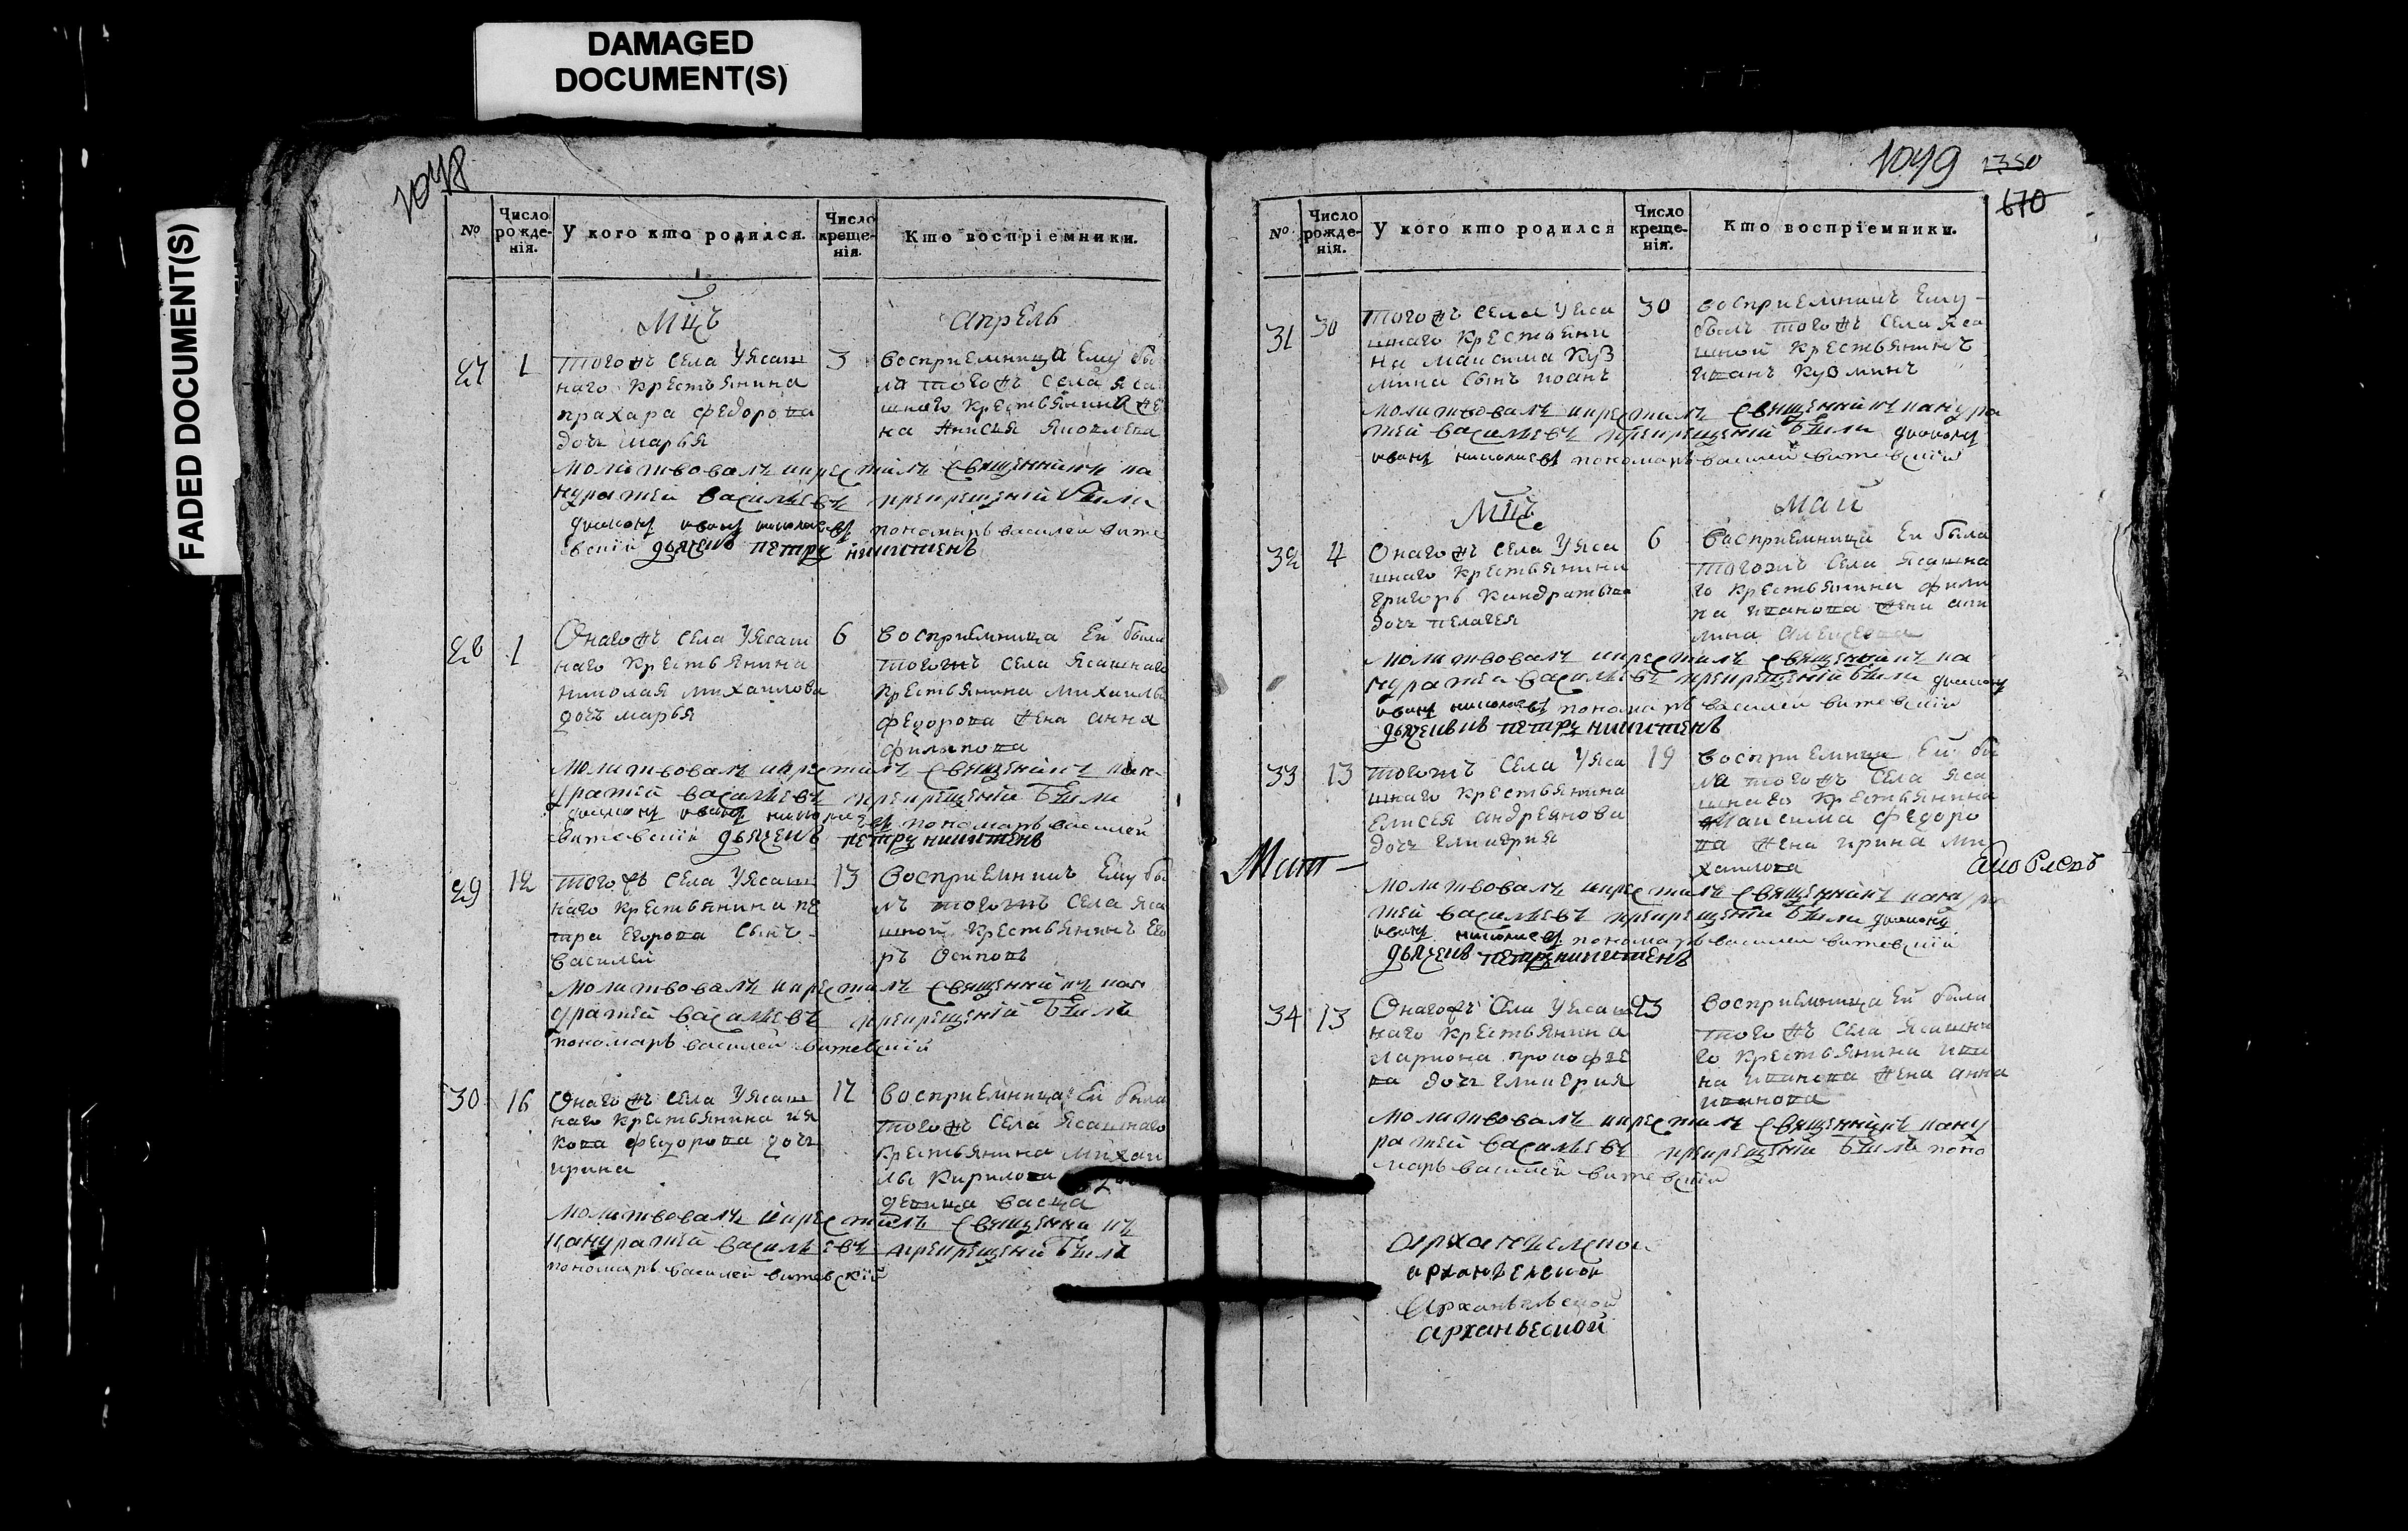 DAMAGED
DOCUMENT(S)
FADED DOCUMENT(S)
1048
№
Число рожде-нія.
У кого кто родился.
Число креще-нія.
Кто воспріемники.
Мцъ
Апрель
27
1
тогожъ села уясаш
наго крестьянина
прахара федорова
дочь марья
3
восприемница ему бы
ла тогожъ села яса
шнаго крестьянина же
на анисья яковлева
молитвовалъ икрестилъ священникъ ка
ндратей васильевъ прикрещеніи были
дьяконъ иванъ николаевъ пономарь василей витев
вскій дьячекъ петръ никитенъ
28
1
Онагожъ села уясаш
наго крестьянина
николая михаилова
дочь марья
6
восприемница ей была
тогожъ села ясашнаго
крестьянина михаилы
федорова жена анна
филипова
молитвовалъ икрестилъ священникъ кан
дратей васильевъ прикрещеніи были
дьяконъ иванъ николаевъ пономарь василей
витевскій дьячекъ петръ никитенъ
29
12
тогожъ села уясаш
наго крестьянина пе
тра егорова сынъ
василей
13
восприемникъ ему бы
лъ тогожъ села яса
шной крестьянинъ его
ръ осиповъ
молитвовалъ икрестилъ священникъ кан
дратей васильевъ прикрещеніи былъ
пономарь василей витевскій
30
16
Онагожъ села уясаш
наго крестьянина ия
кова федорова дочь
ирина
17
восприемница ей была
тогожъ села ясашнаго
крестьянина михаи
лы кирилова
девица васса
молитвовалъ икрестилъ священникъ
кандратей васильевъ прикрещеніи былъ
пономарь василей витевскій
1049
1350
670
№
Число рожде-нія.
У кого кто родился
Число креще-нія.
Кто воспріемники.
31
30
тогожъ села уяса
шнаго крестьяни
на максима куз
мина сынъ иоанъ
30
восприемникъ ему
былъ тогожъ села яса
шной крестьянинъ
иванъ кузминъ
молитвовалъ икрестилъ священникъ кандра
тей васильевъ прикрещеніи были дьяконъ
иванъ николаевъ пономарь василей витевскій
Мцъ
Май
32
4
Онагожъ села уяса
шнаго крестьянина
григорь кандратьева
дочь пелагея
6
Восприемница ей была
тогожъ села ясашна
го крестьянина фили
па иванова жена аки
лина алексеева
молитвовалъ икрестилъ священникъ ка
ндратей васильевъ прикрещеніи были дьяконъ
иванъ николаевъ пономарь василей витевскій
дьячекъ петръ никитенъ
33
13
тогожъ села уяса
шнаго крестьянина
елисея андреянова
дочь гликерия
19
восприемница ей бы
ла тогожъ села яса
шнаго крестьянина
максима федоро
ва жена ирина ми
хаилова
молитвовалъ икрестилъ священникъ кандра
тей васильевъ прикрещеніи были дьяконъ
иванъ николаевъ пономарь василей витевскій
дьячекъ петръ никитенъ
34
13
Онагожъ села уясаш
наго крестьянина
лариона прокофье
ва дочь гликерия
23
восприемница ей была
тогожъ села ясашна
го крестьянина ива
на иванова жена анна
иванова
молитвовалъ икрестилъ священникъ канд
ратей васильевъ прикрещеніи былъ поно
марь василей витевскій